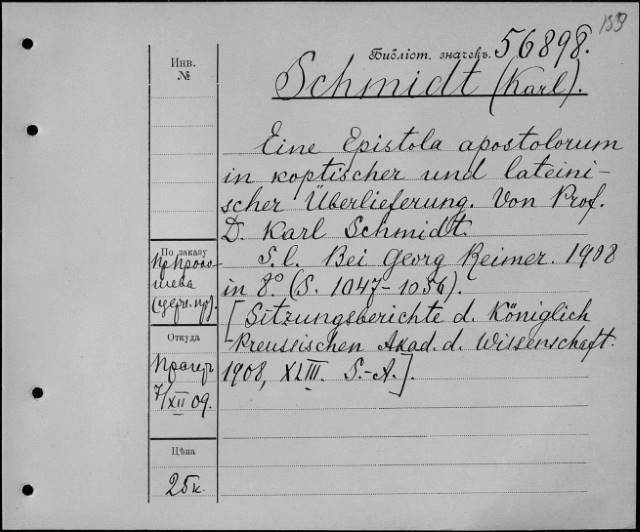 133
Библіот. значекъ 56898.
Schmidt (Karl).
Инв.
№
Eine Epistola apostolorum
in koptischer und lateini-
scher Überlieferung. Von Prof.
D. Karl Schmidt.
S. l. Bei Georg Reimer. 1908
in 8º. (S. 1047-1056).
[Sitzungsberichte d. Königlich
Preussischen Akad. d. Wissenschaft.
1908, XLIII. S.-A.].
По заказу
Пр.
(церк. пр).
Откуда
7/XII 09.
Цѣна
25к.